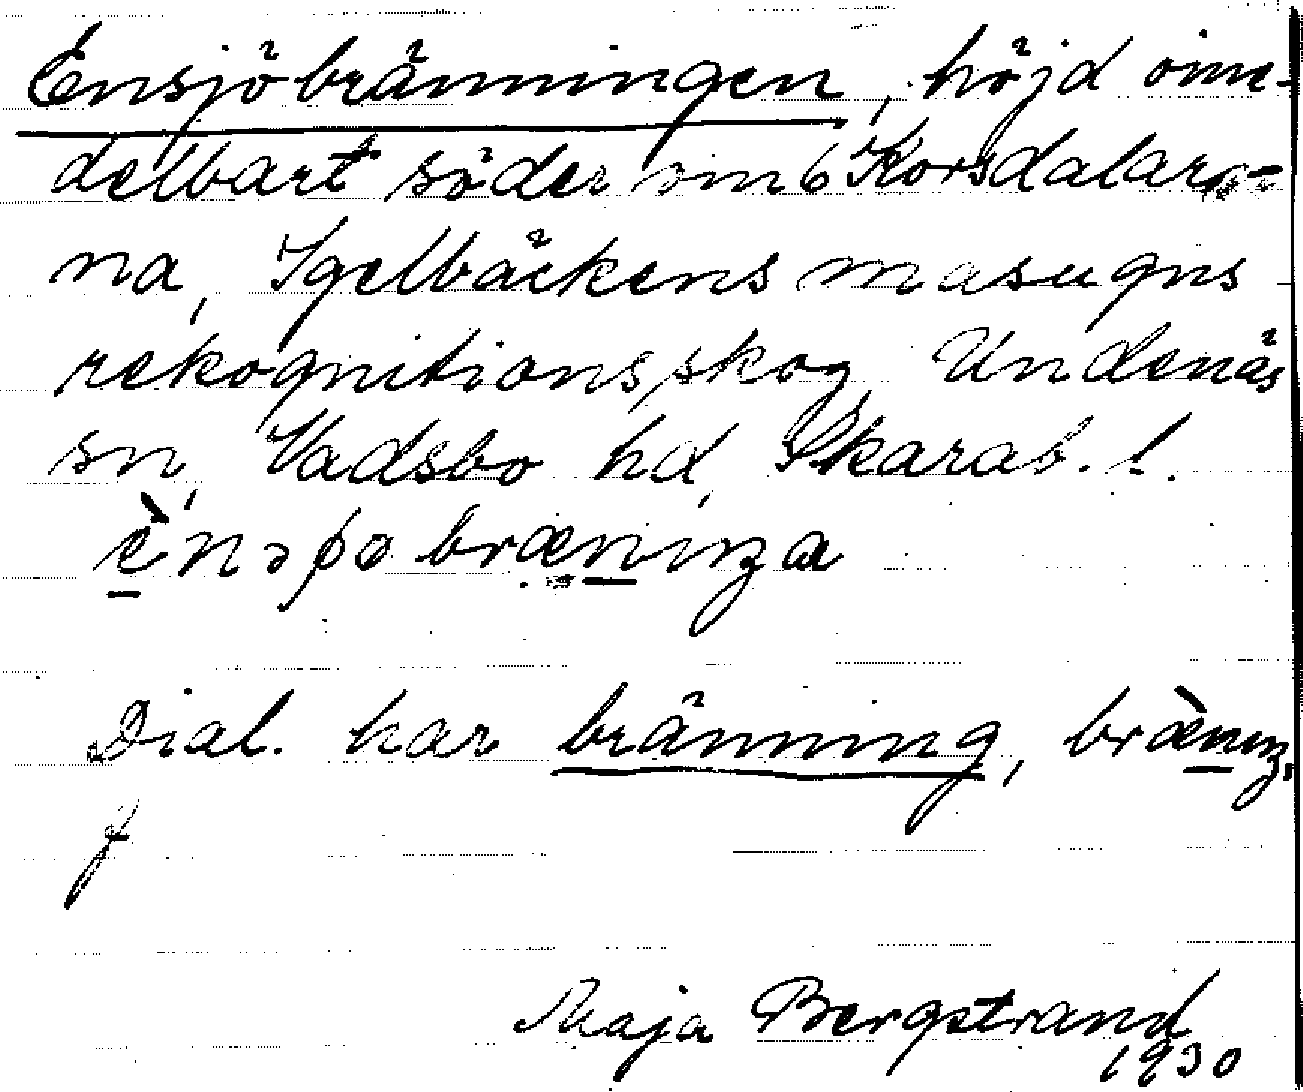 Ensjöbränningen, höjd ome-
delbart söder om Korsdalar-
na, Igelbäckens masugns
rekognitionsskog, Undenäs
sn, Vadsbo hd, Skarab. l.
Dial. har bränning,
f
Maja Bergstrand
1930